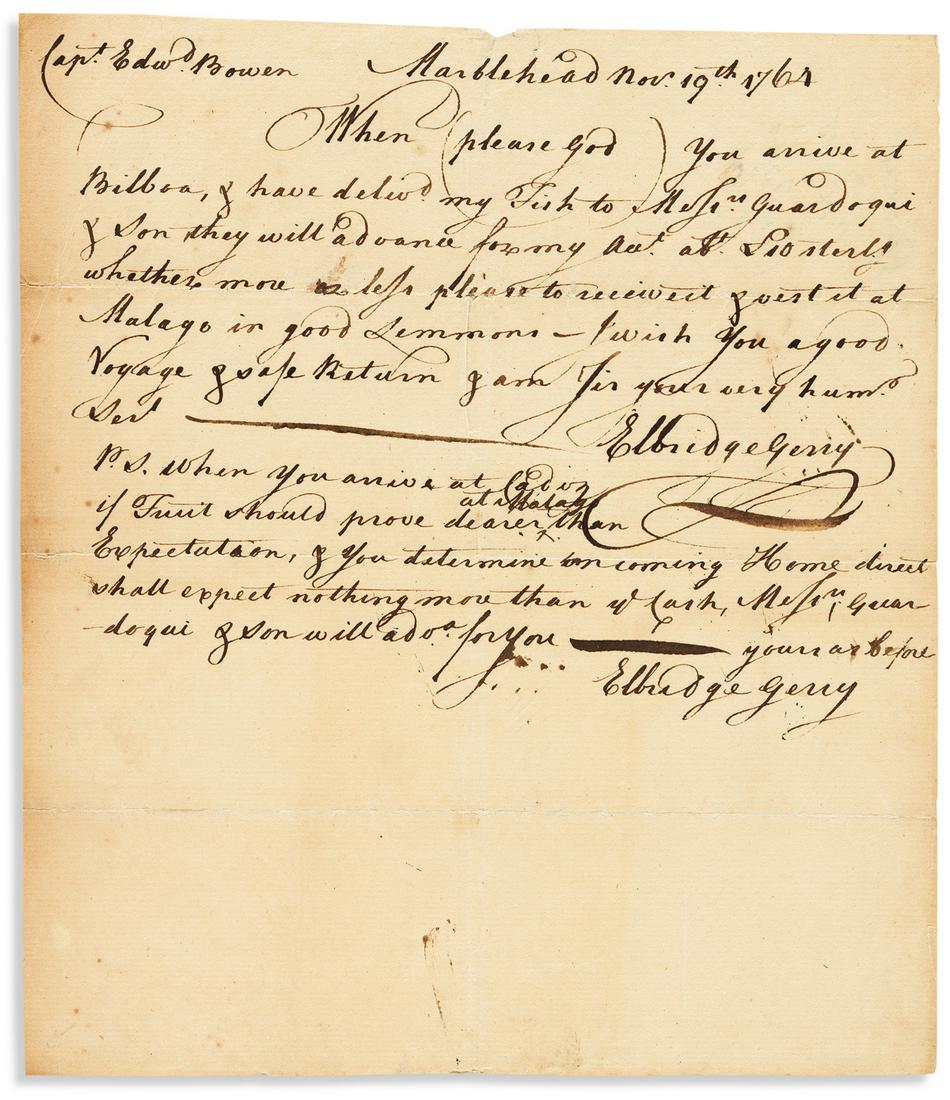 Capt. Edwd. Bowen Marblehead Nov. 19th 1764
When (please God) You arrive at
Bilboa, & have deliv'd my Fish to Messrs Guardoqui
& Son they will advance for my Acct. abt. £50 sterlg
whether more or less please to receive it & vest it at
Malago in good Lemmons – I wish You a good
Voyage & safe Return & am Sir your very hume.
Servt Elbridge Gerry
P.S. When You arrive at Cadiz
if Fruit should prove dearer at Malago than
Expectation, & You determine on coming Home direct
shall expect nothing more than ye Cash, Messrs. Guar-
-doqui & Son will adva. for You yours as before
Elbridge Gerry